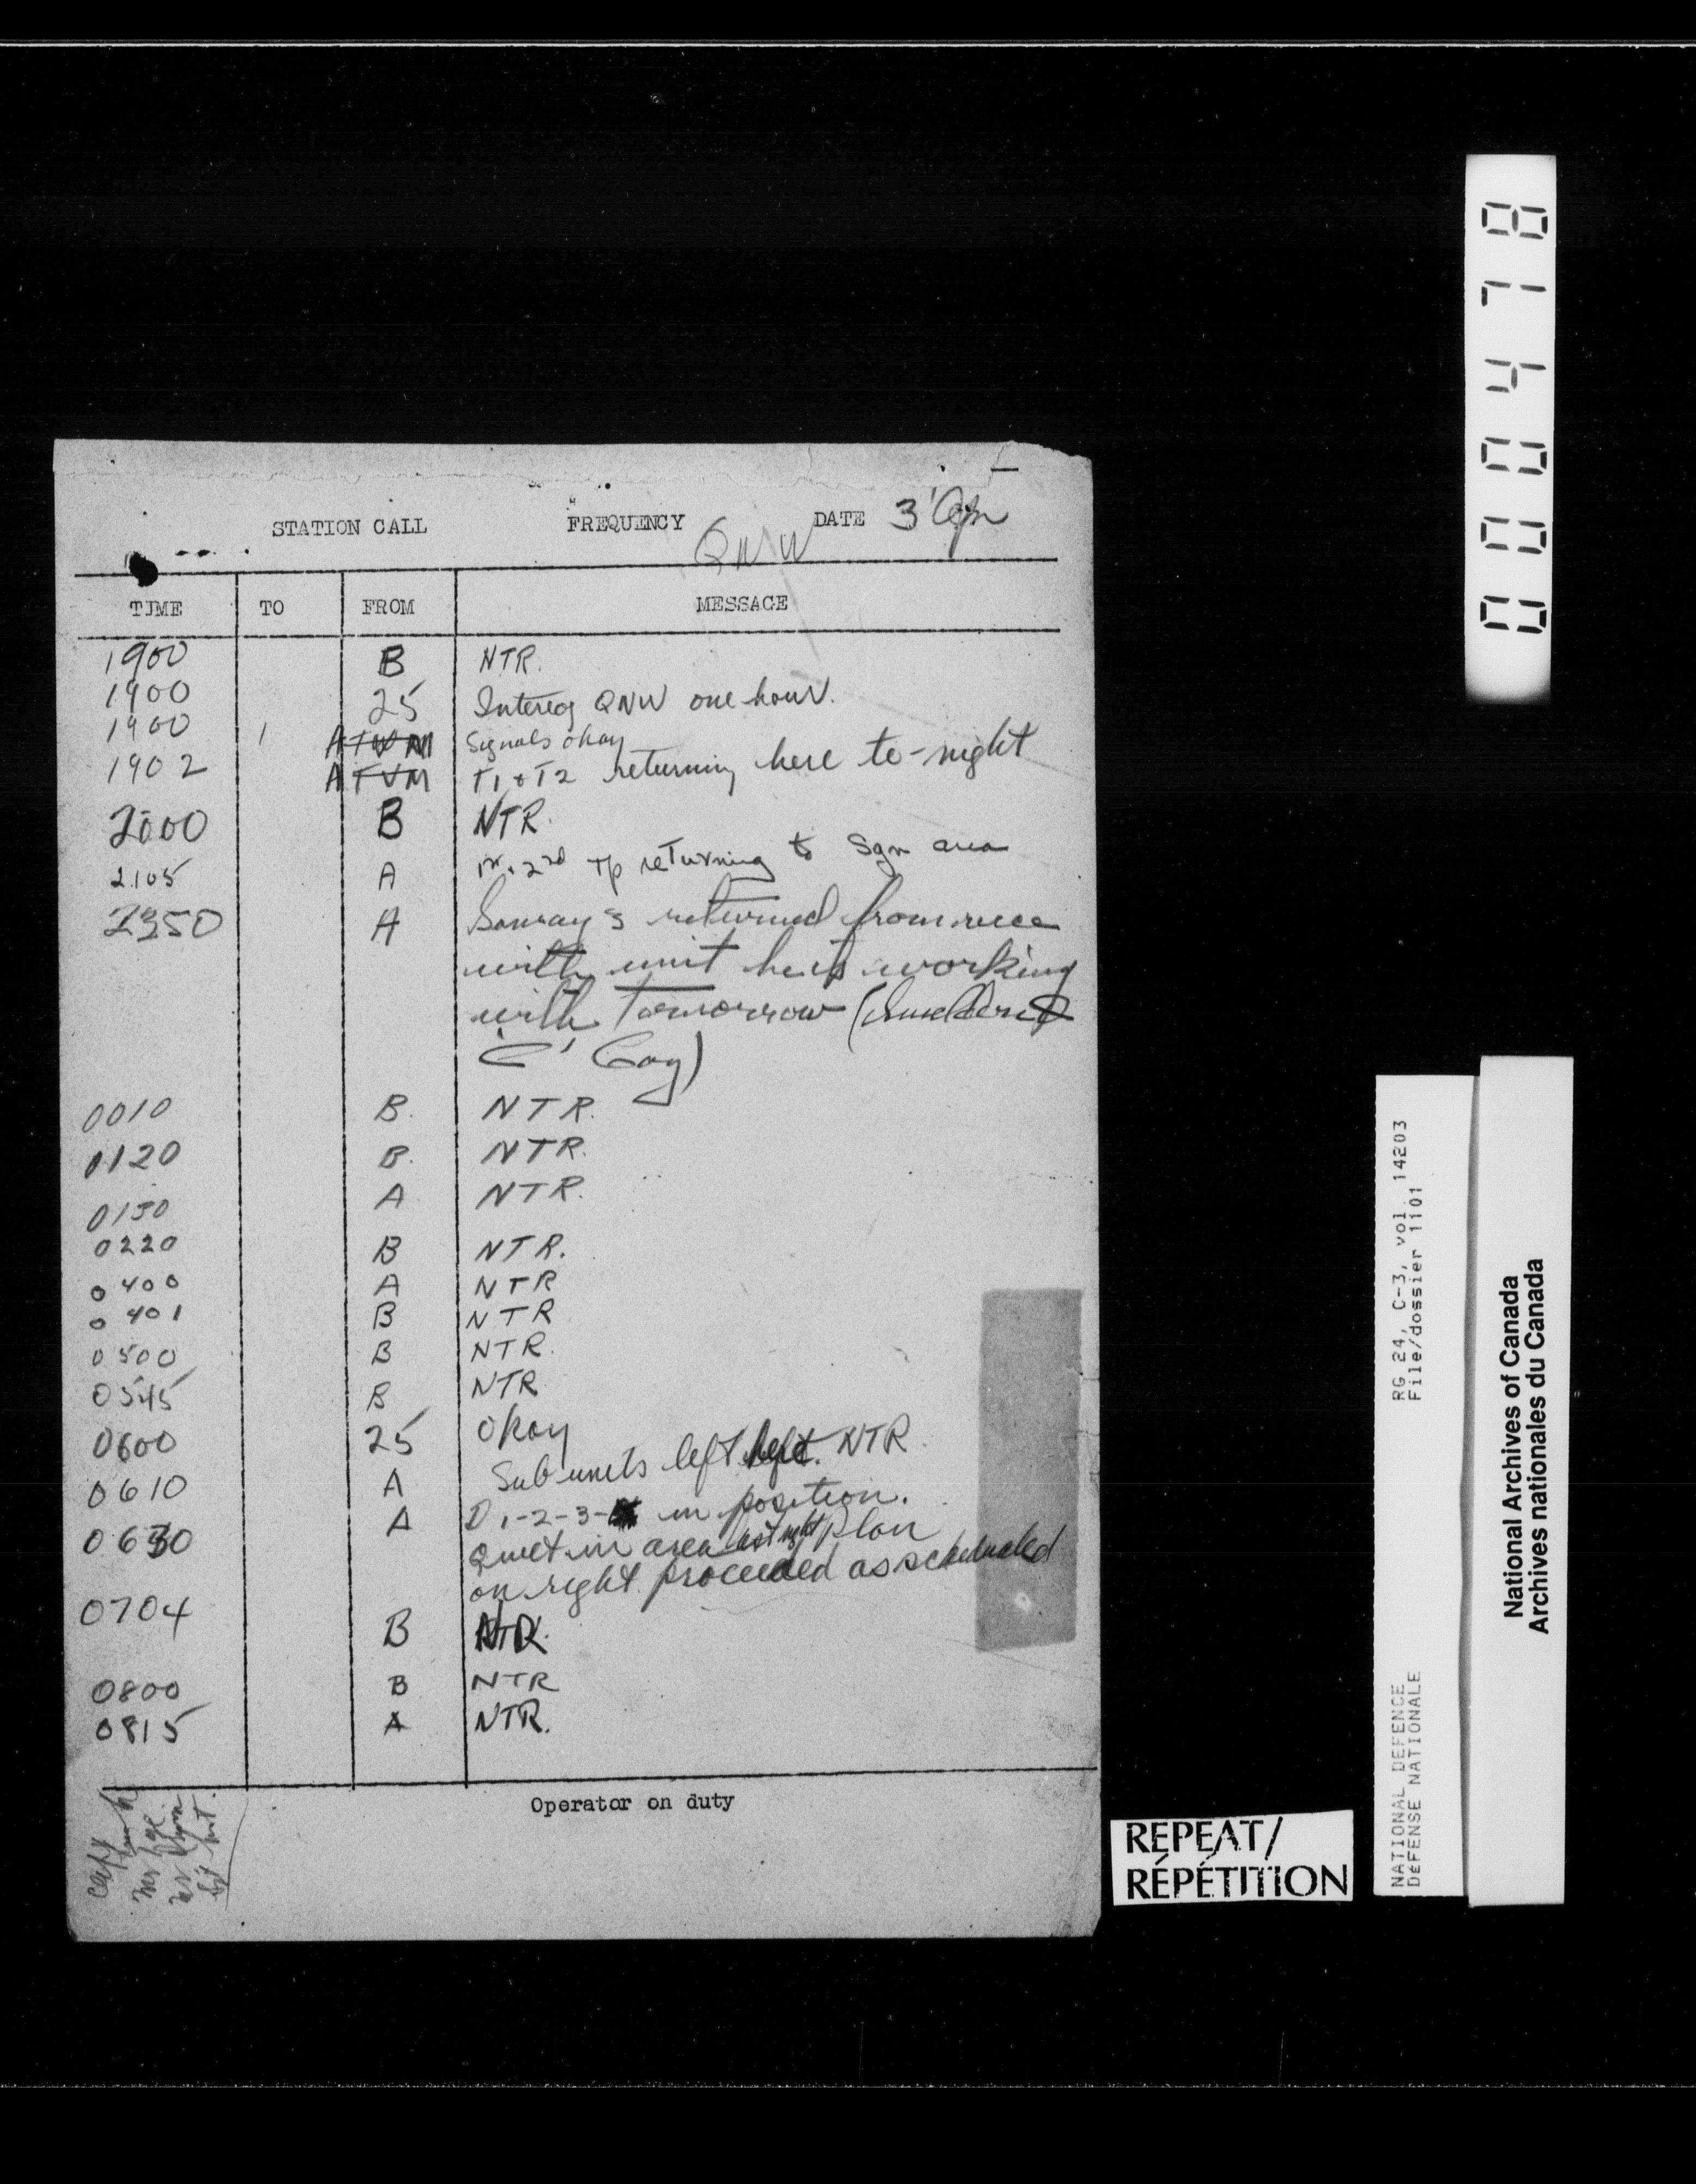 STATION CALL FREQUENCY QNW DATE 3 Apr
TIME TO FROM MESSAGE
1900 B NTR.
1900 25 Intereg QNW one hour.
1900 1 ATVM Signals okay
1902 ATVM T1 & T2 returning here to-night
2000 B NTR.
2105 A 1st & 2nd Tp returning to Sqn area
2350 A Sunray's returned from recce
with unit he is working
with tomorrow
'C' Coy)
0010 B. NTR.
0120 B. NTR.
0150 A NTR.
0220 B NTR.
0400 A NTR
0401 B NTR
0500 B NTR.
0545 B NTR
0600 25 Okay
0610 A Sub units left left. NTR.
0630 A D 1-2-3- in position.
Quiet in area last night plan
on right proceeded as scheduled
0704 B NTR.
0800 B NTR
0815 A NTR.
Operator on duty
Capt
000478
RG 24, C-3, vol. 14203
File/dossier 1101
NATIONAL DEFENCE
DÉFENSE NATIONALE
National Archives of Canada
Archives nationales du Canada
REPEAT/
RÉPÉTITION